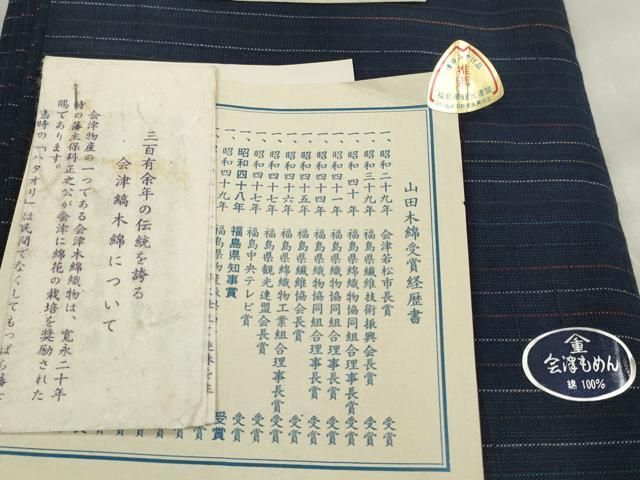 推奨
福島県観光連盟
山田木綿受賞経歴書
一、昭和二十九年 会津若松市長賞 受賞
一、昭和三十九年 福島県繊維技術振興会長賞 受賞
一、昭和四十年 福島県綿織物協同組合理事長賞 受賞
一、昭和四十一年 福島県織物協同組合理事長賞 受賞
一、昭和四十四年 福島県綿織物協同組合理事長賞 受賞
一、昭和四十五年 福島県繊維協会長賞 受賞
一、昭和四十六年 福島県綿織物工業組合理事長賞 受賞
一、昭和四十七年 福島県観光連盟会長賞 受賞
一、昭和四十七年 福島中央テレビ賞 受賞
一、昭和四十八年 福島県知事賞 受賞
一、昭和四十九年 福島県物産
三百有余年の伝統を誇る
会津縞木綿について
会津物産の一つである会津木綿織物は、寛永二十年
時の藩主保科正之公が会津に綿花の栽培を奨励された
賜であります。
当時の「ハタオリ」は民間でなくしてもっぱら
会津もめん
綿 100%